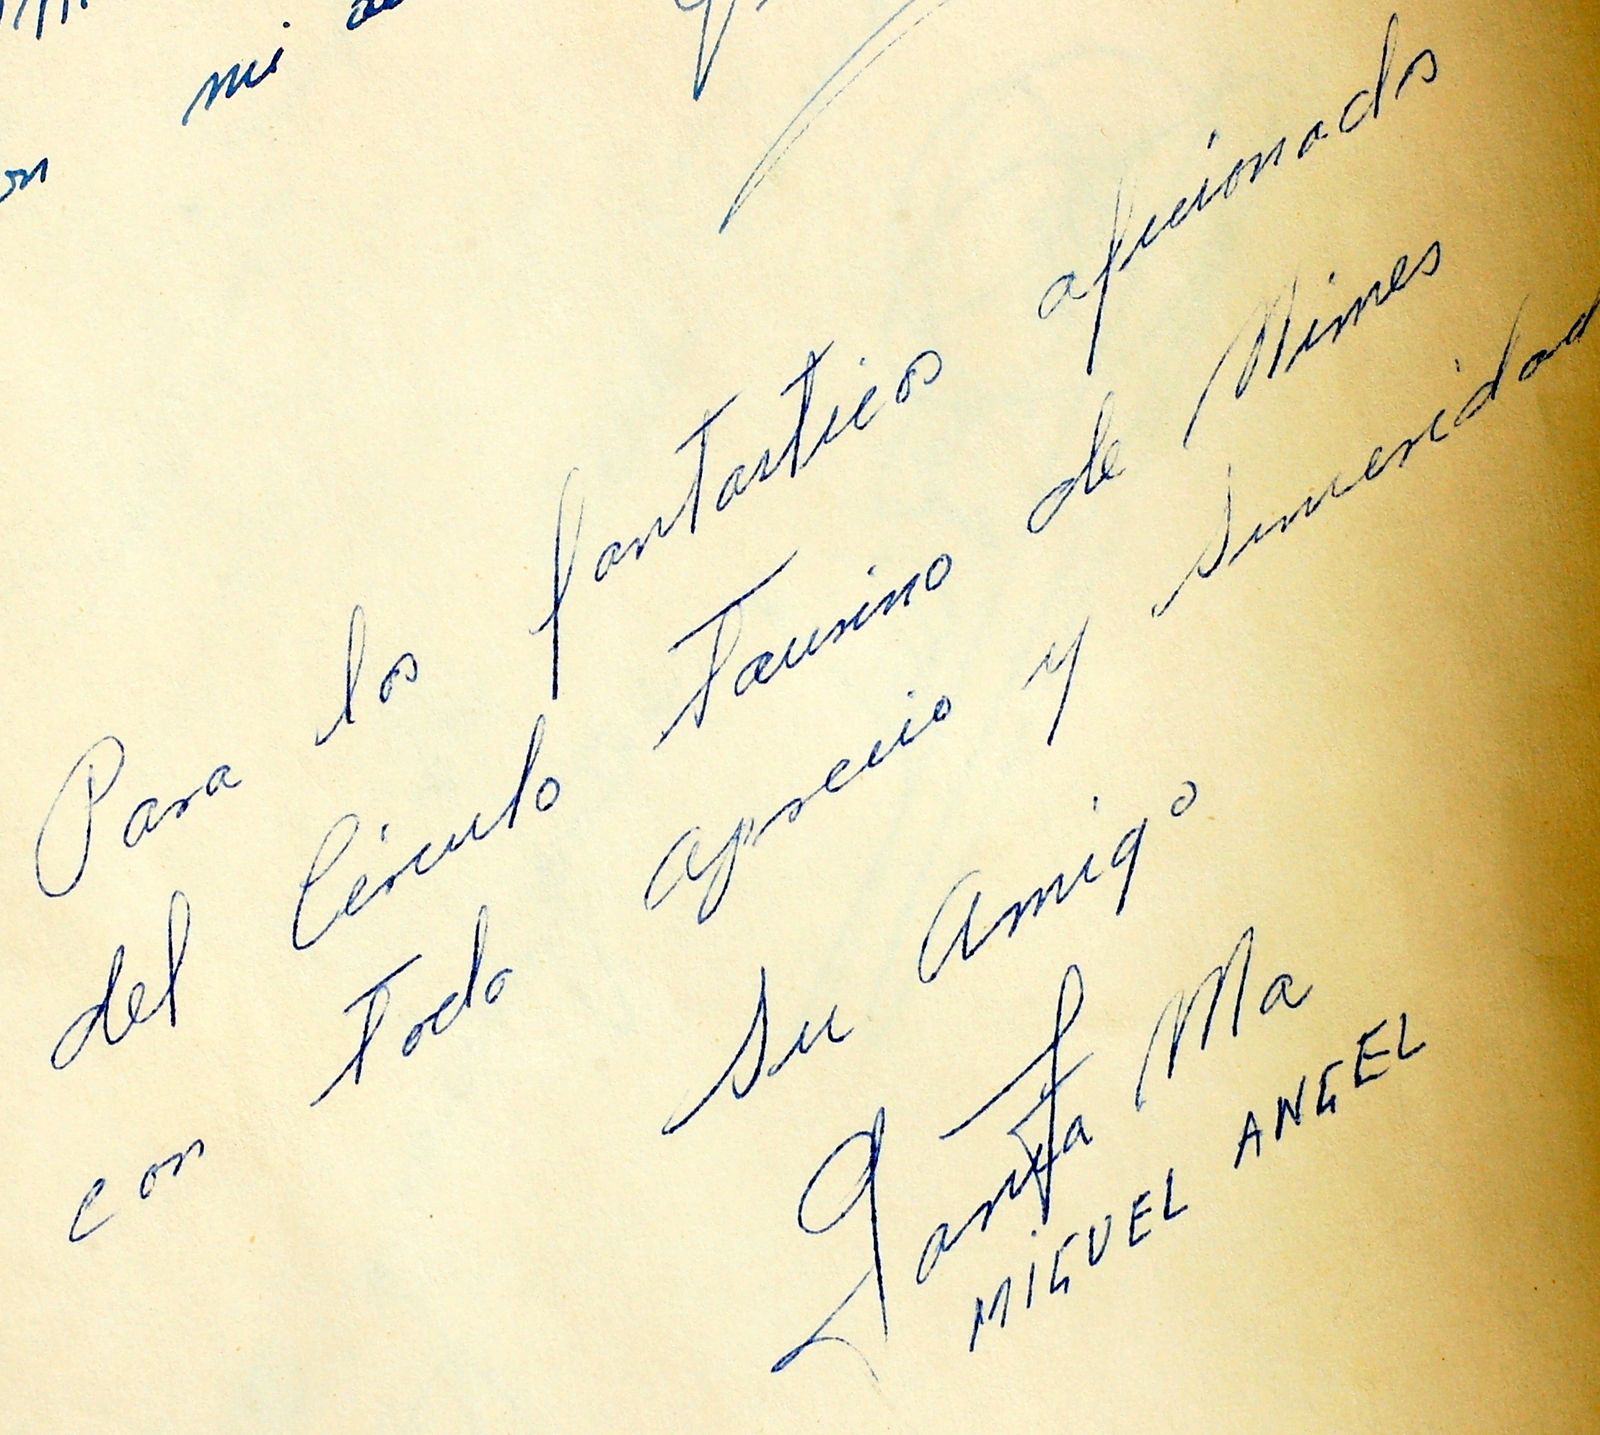 mi
Para los fantasticos aficionados
del Círculo Taurino de Nimes
con todo aprecio y sinceridad
su amigo
Santa Ma
MIGUEL ANGEL